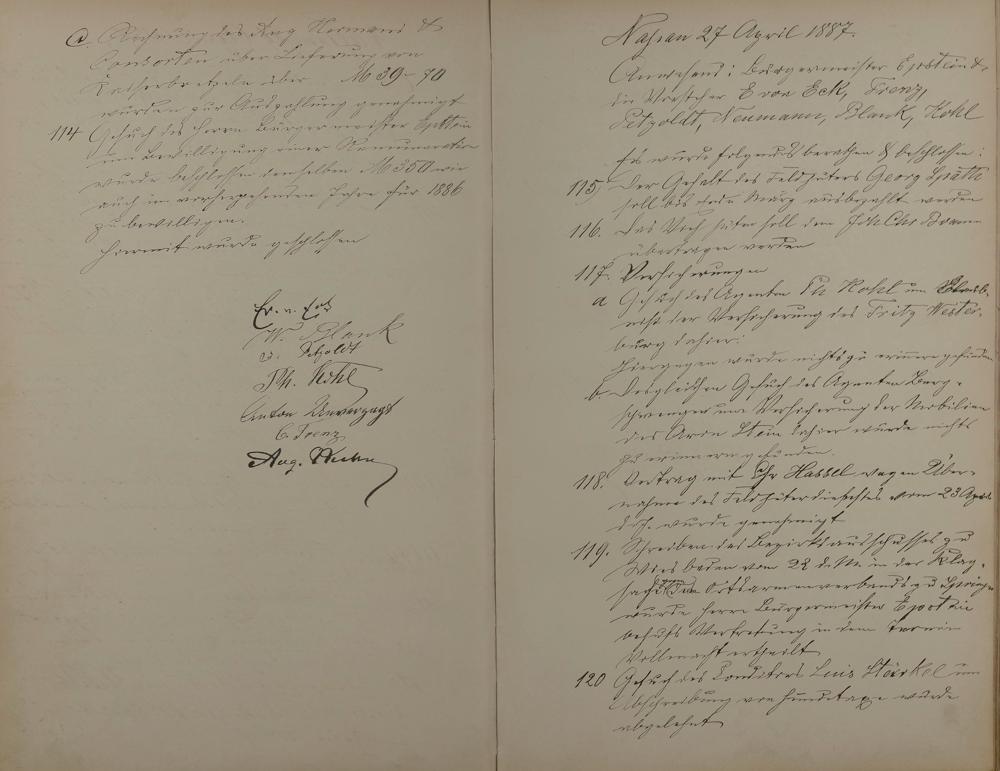 c. Rechnung des Aug Hermani &
Consorten über Lieferung von
über M 39-70
wurden zur Auszahlung genehmigt
114 Gesuch des Herrn Bürgermeister Epstein
um Bewilligung einer Remuneration
wurde beschlossen demselben M 350 wie
auch im vorhergehenden Jahre für 1886
zu bewilligen.
Hiermit wurde geschlossen
Er. v. Eck
W. Blank
Petzoldt
Ph. Kohl
Anton Unverzagt
C. Trenz
Aug.
Nassau 27 April 1887.
Anwesend: Bürgermeister Epstein &
die Vorsteher E von Eck, Trenz,
Petzoldt, Neumann, Blank, Kohl
Es wurde folgendes berathen & beschlossen:
115) Der Gehalt des Feldhüters Georg Späth
soll bis Ende März ausbezahlt werden
116. Das Vieh hüten soll dem Joh Chr
übertragen werden
117. Versicherungen
a Gesuch des Agenten Ph Kohl um Erlaub-
niß der Versicherung des Fritz Wester-
burg dahier:
Hiergegen wurde nichts zu erinnern gefunden
b Desgleichen Gesuch des Agenten Berg-
schwenger um Versicherung der Mobilien
des Aron Stein dahier wurde nichts
zu erinnern gefunden.
118. Vertrag mit Chr Hassel wegen Über-
nahme des Feldhüterdienstes vom 23 April
d. J. wurde genehmigt
119. Schreiben des Bezirksausschusses zu
Wiesbaden vom 22 d. M. in der Klag-
sache Ortsarmenverbands zu
wurde Herrn Bürgermeister Epstein
behufs Vertretung in dem Termin
Vollmacht ertheilt
120 Gesuch des Conditors Luis Stöckel um
Abschreibung von Hundetaxe wurde
abgelehnt